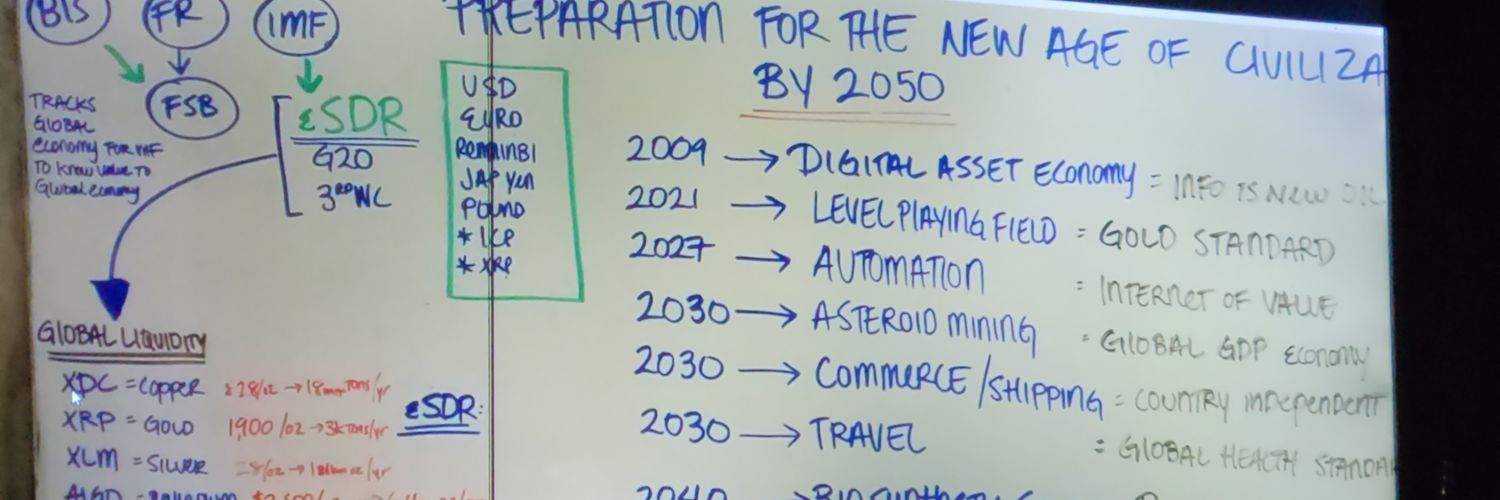 BIS
FR
IMF
FSB
TRACKS
GLOBAL
Economy FOR IMF
TO Know Value TO
Global economy
εSDR
G20
3RD WC
USD
EURO
RemainBI
JAP Yen
POUND
* ICP
* XRP
GLOBAL LIQUIDITY
XDC = COPPER
XRP = GOLD 1,900 /oz → 3k Tons/yr
XLM = SILVER
εSDR:
PREPARATION FOR THE NEW AGE OF CIVILIZA
BY 2050
2009 → DIGITAL ASSET Economy = INFO IS NEW OIL
2021 → LEVEL PLAYING FIELD = GOLD STANDARD
2027 → AUTOMATION = INTERNET OF VALUE
2030 → ASTEROID MINING = GLOBAL GDP Economy
2030 → COMMERCE/SHIPPING = COUNTRY INDEPENDENT
2030 → TRAVEL = GLOBAL HEALTH STANDA
2040